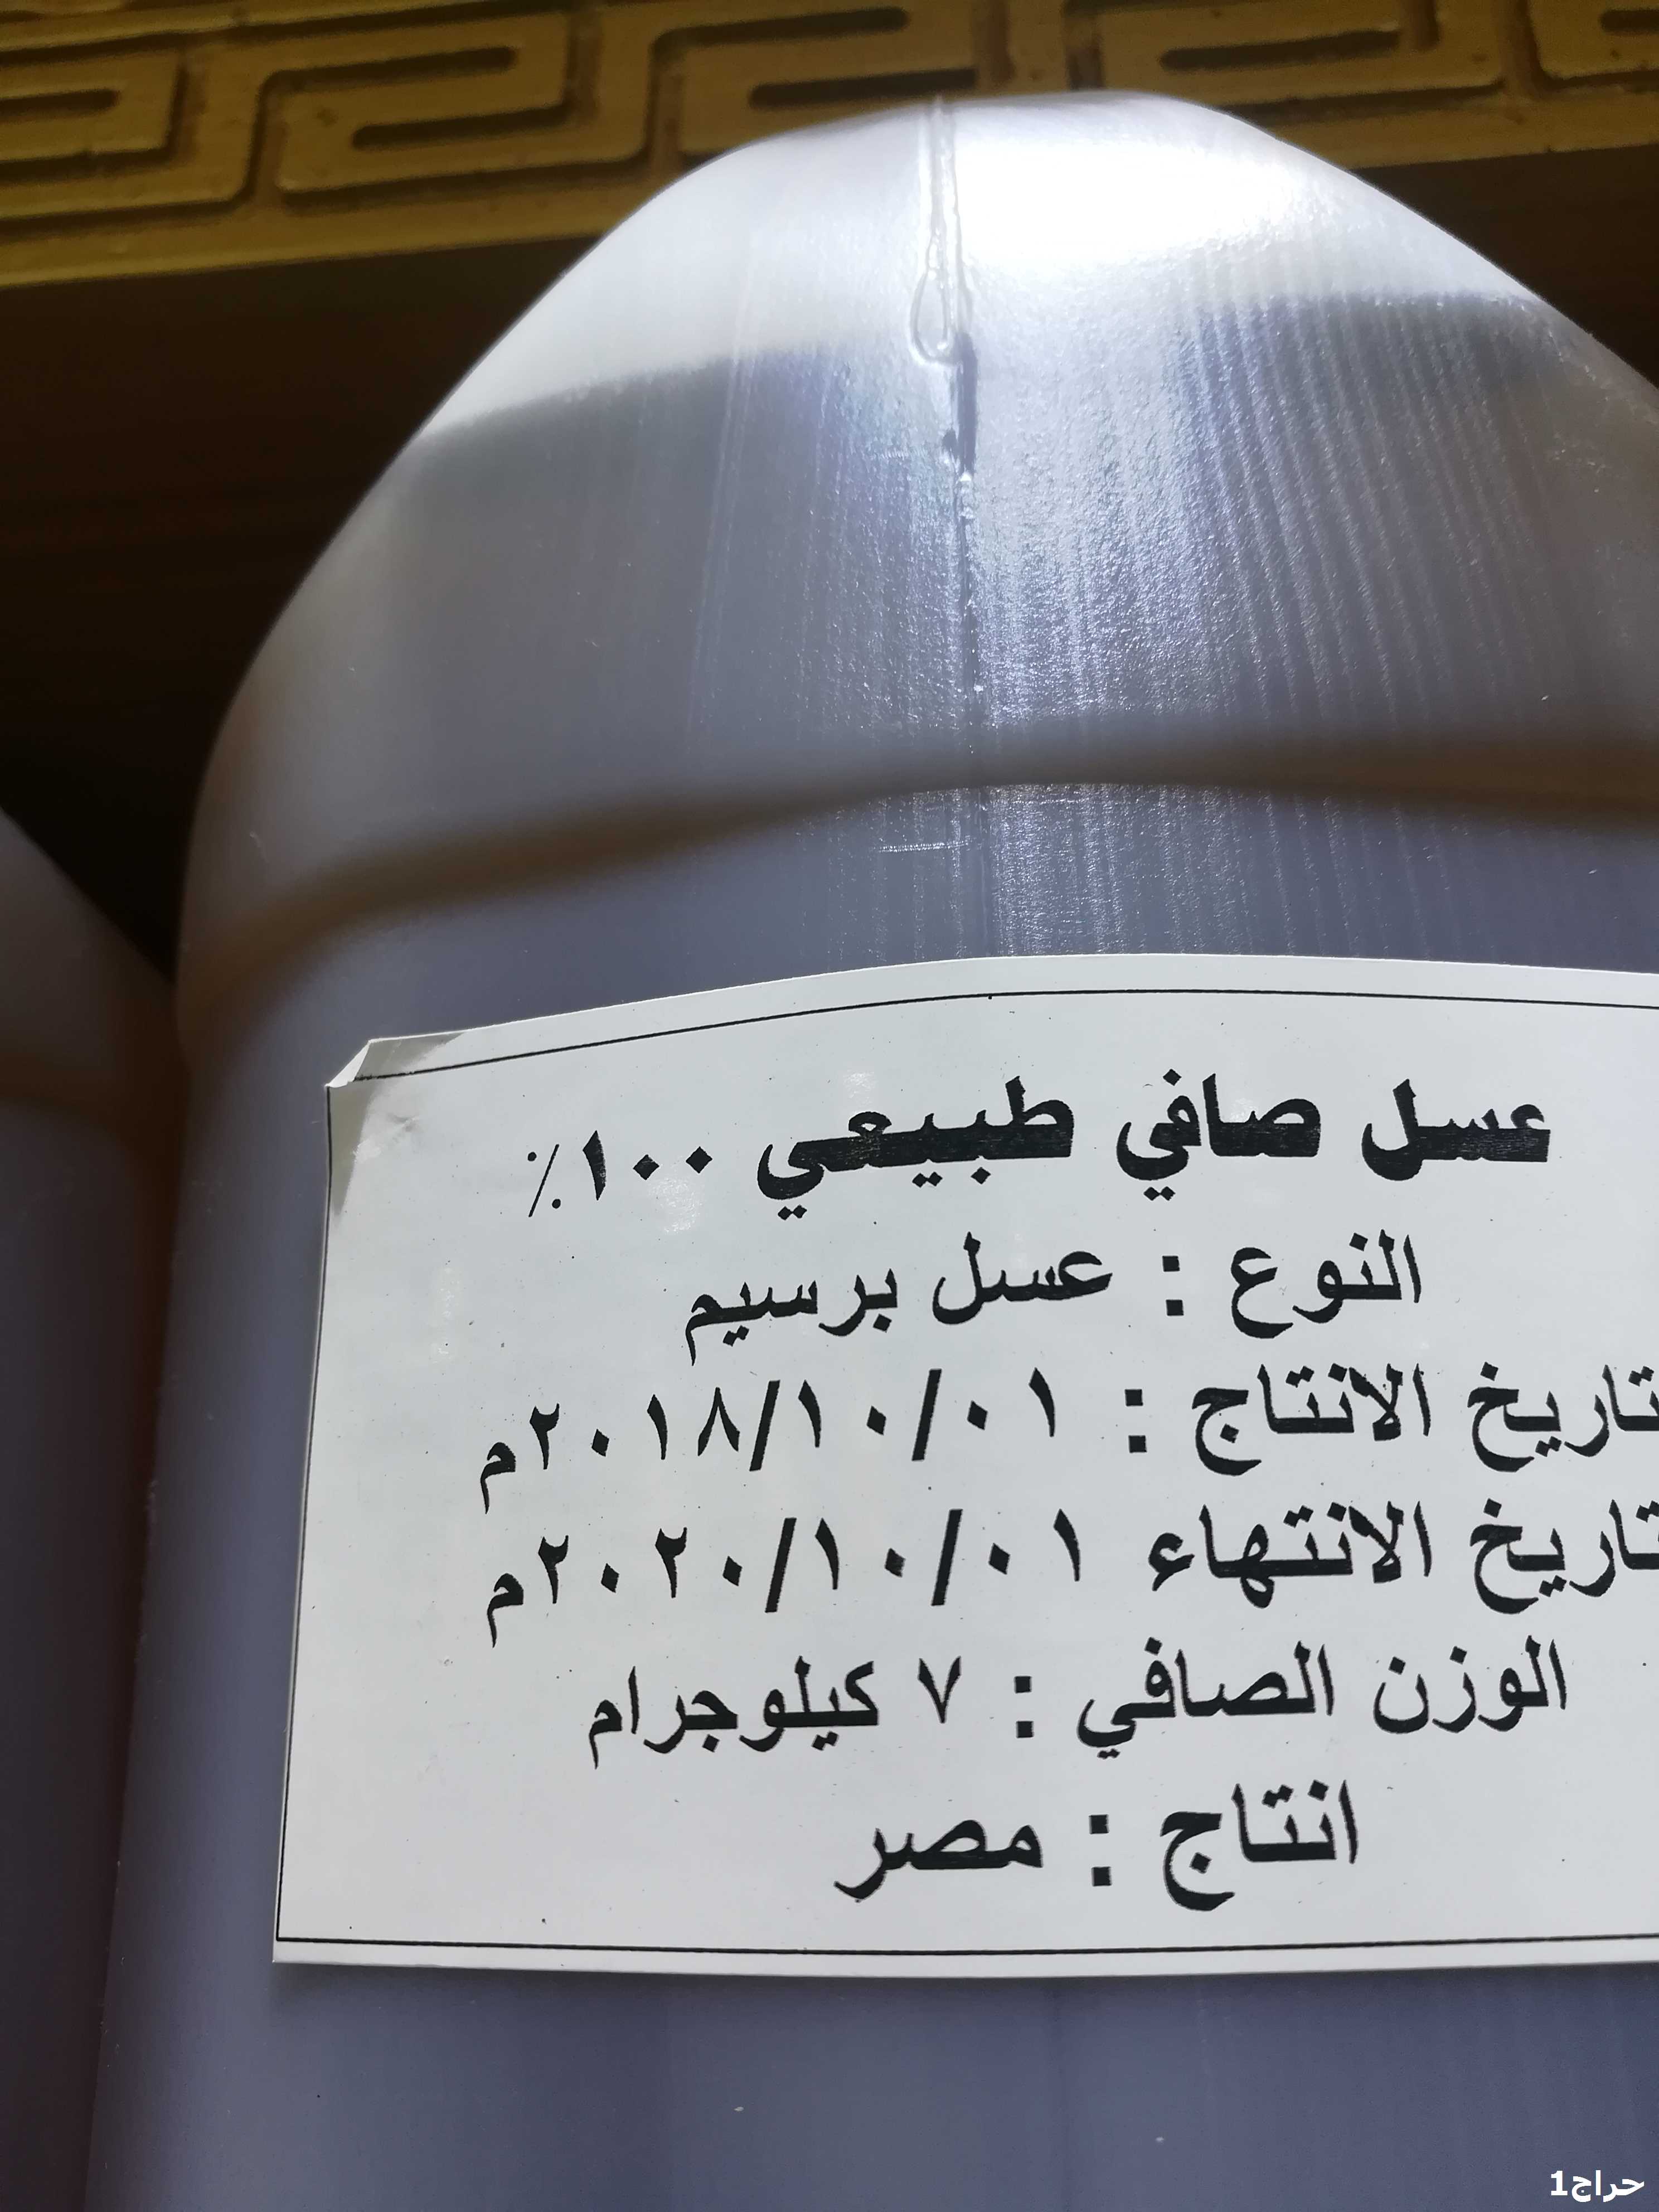 عسل صافي طبيعي ١٠٠٪
النوع : عسل برسيم
تاريخ الانتاج : ٢٠١٨/١٠/٠١م
تاريخ الانتهاء ٢٠٢٠/١٠/٠١م
الوزن الصافي : ٧ كيلوجرام
انتاج : مصر
حراج1